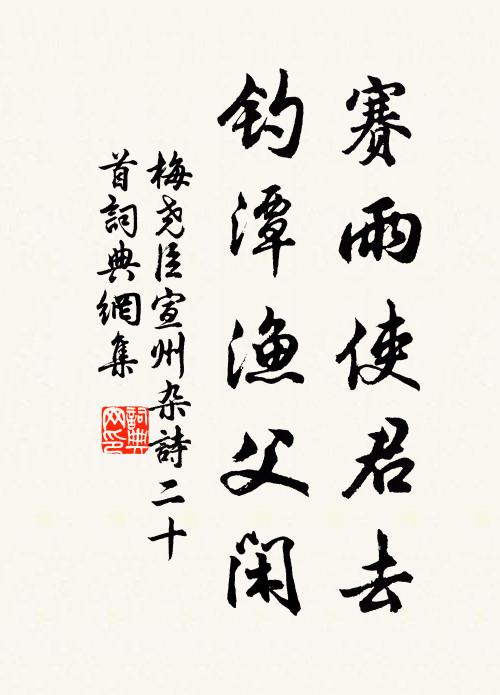 賽雨使君去
釣潭渔父閑
梅尧臣宣州杂詩二十
首詞典網集
詞典
网印